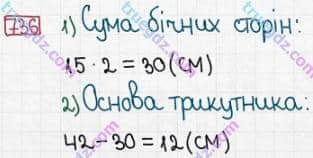 736 1) Сума бічних сторін:
15 · 2 = 30 (см)
2) Основа трикутника:
42 – 30 = 12 (см)